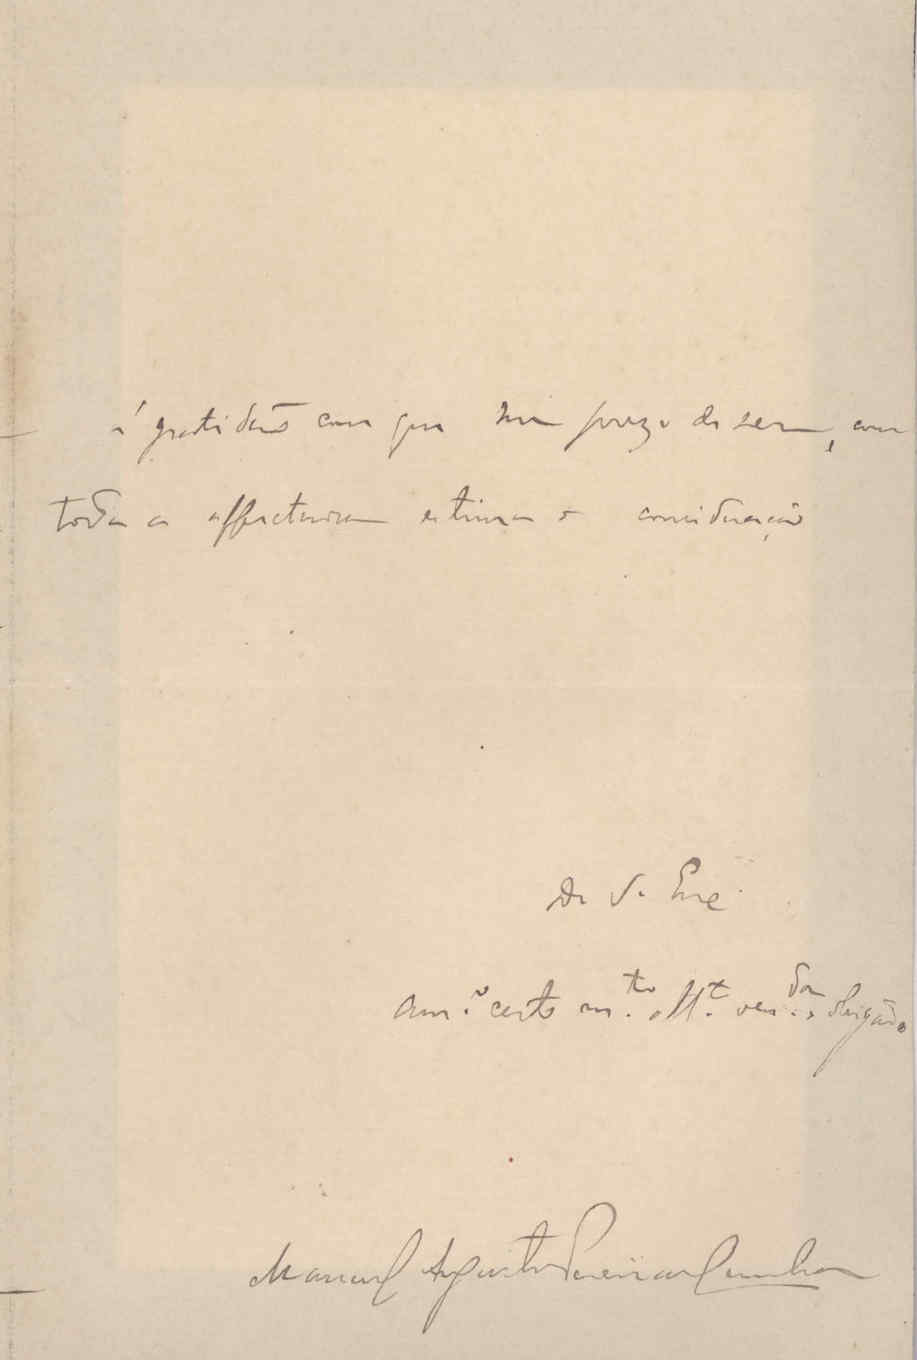 á gratidão com que me prezo de ser, com
toda a affectuosa estima e consideração
De V. Exª
Am.º certo m.to att.º ven.dor e obrigado
Manuel Augusto Pereira e Cunha